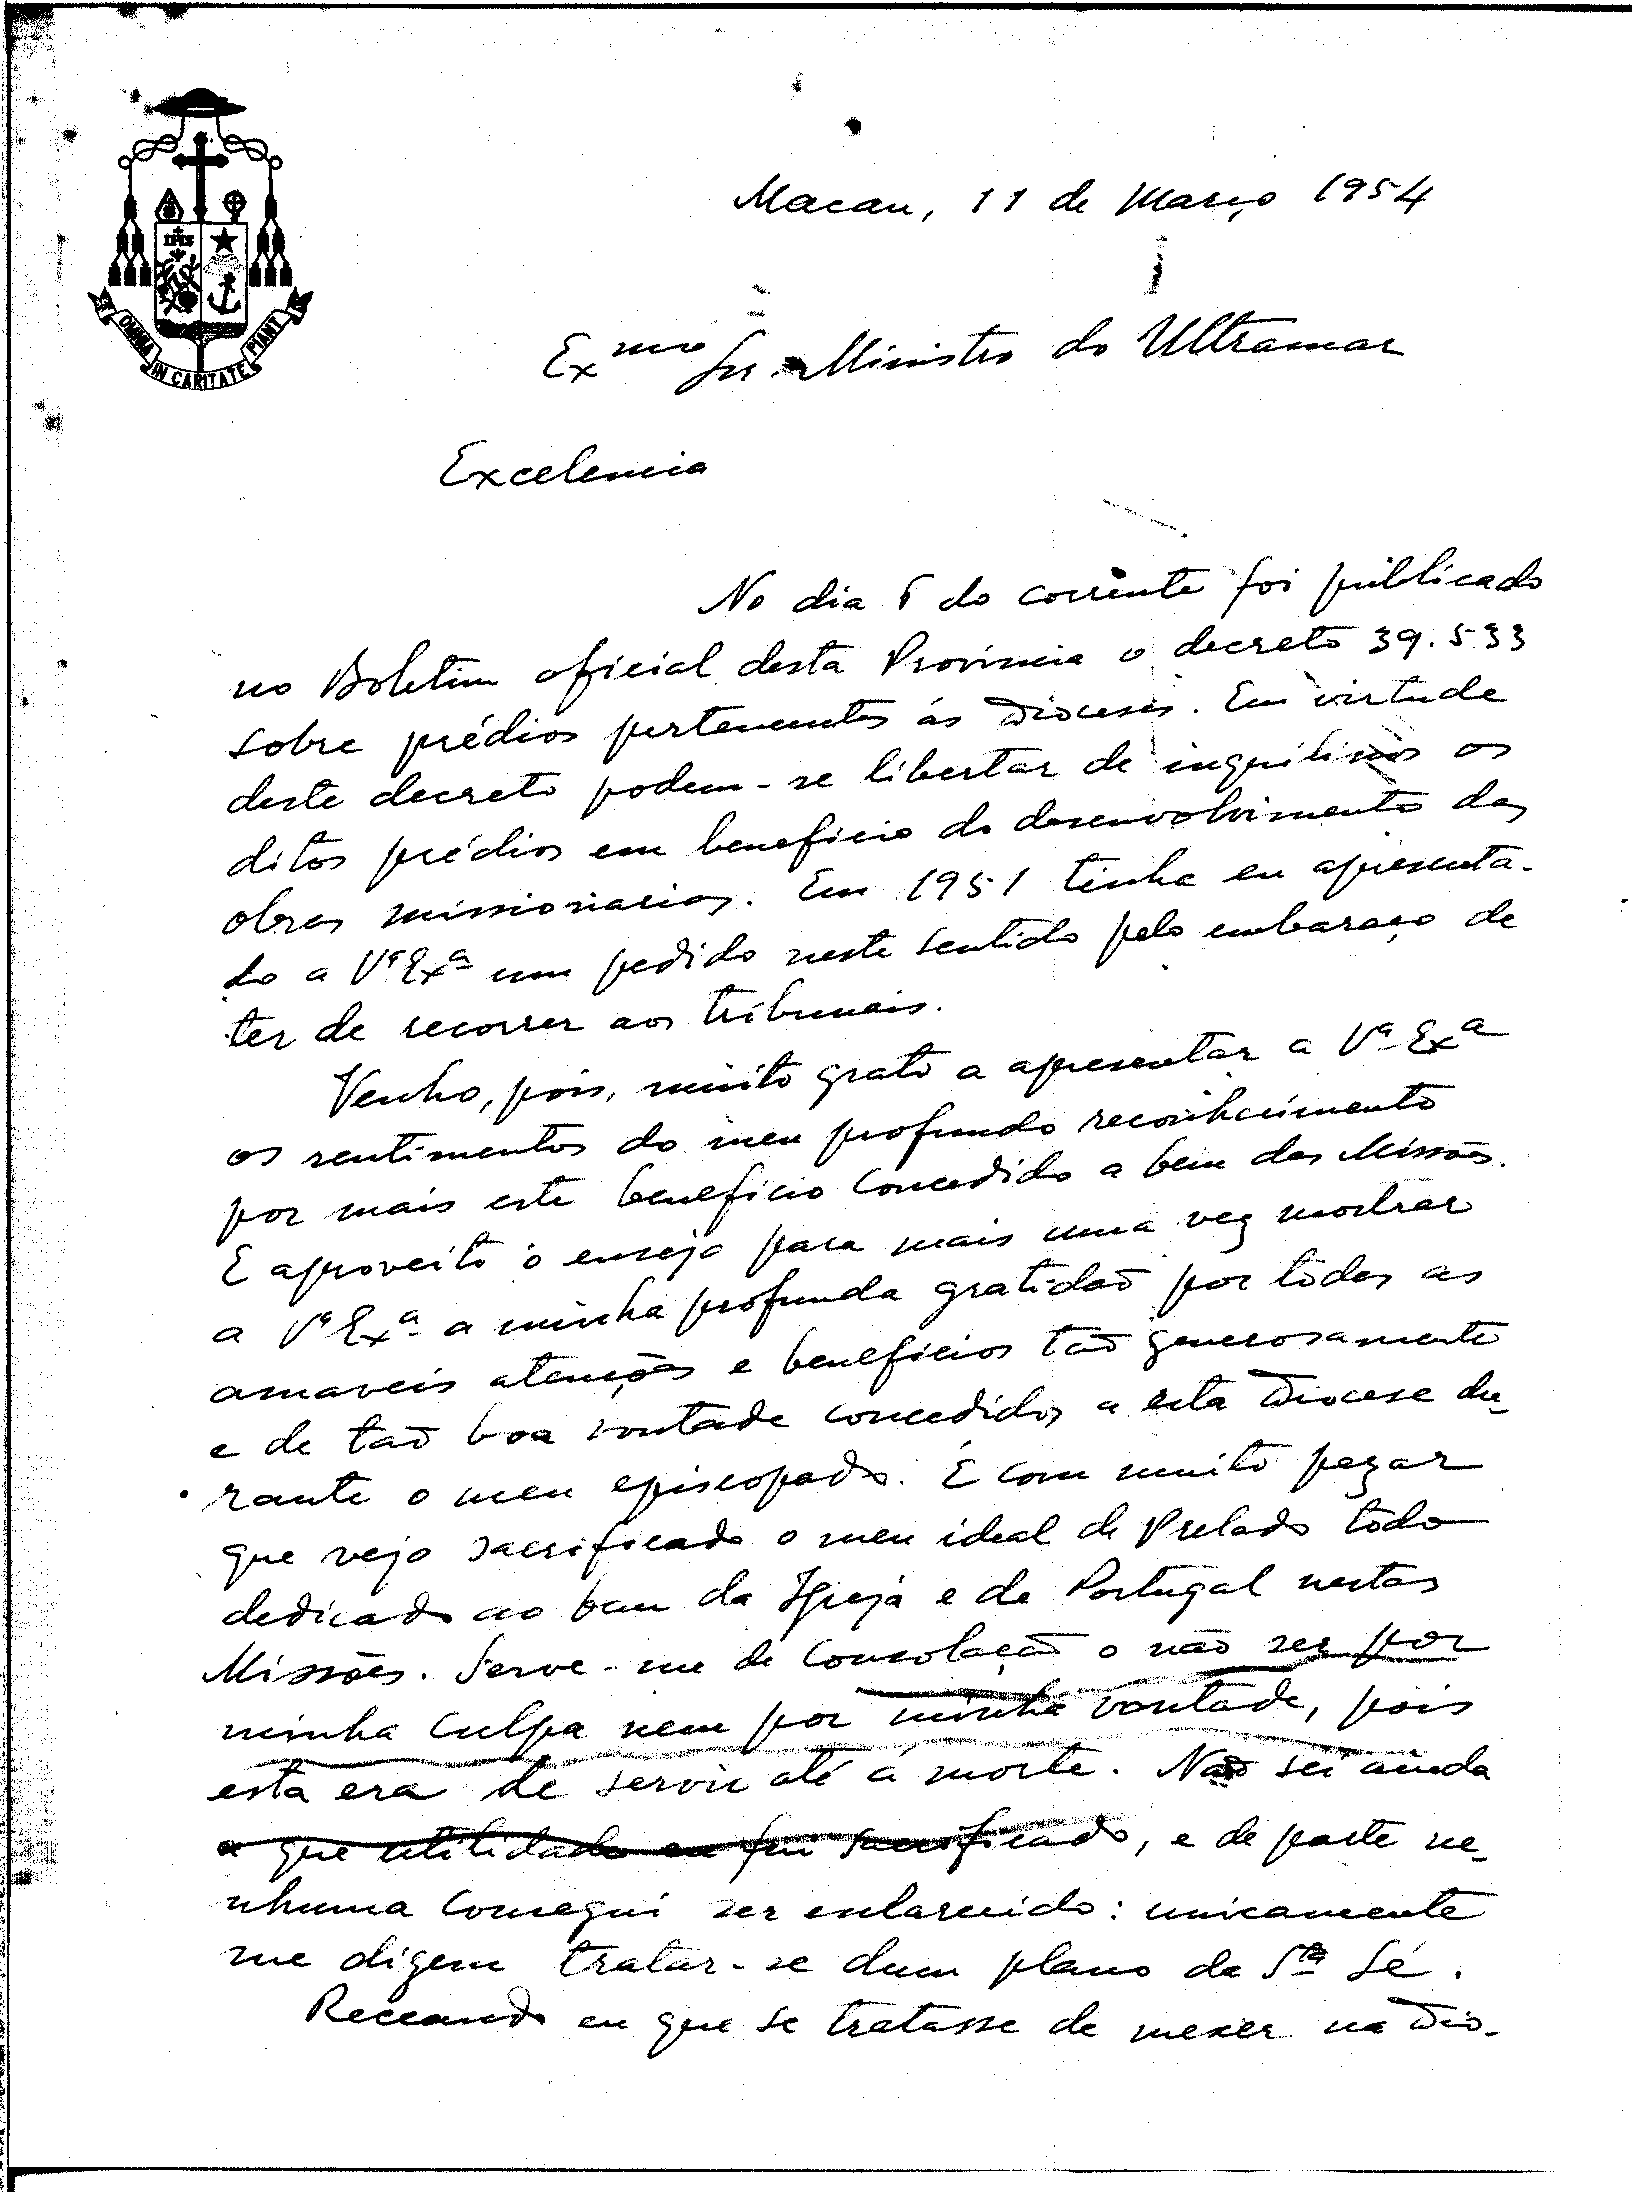 OMNIA IN CARITATE FIANT
IHS
Macau, 11 de Março 1954
Exmo Snr. Ministro do Ultramar
Excelencia
No dia 6 do corrente foi publicado
no Boletim oficial desta Provincia o decreto 39.533
sobre prédios pertencentes ás Dioceses. Em virtude
deste decreto podem-se libertar de inquilinos os
ditos prédios em beneficio do desenvolvimento das
obras missionarias. Em 1951 tinha eu apresenta-
do a Vª Exª um pedido neste sentido pelo embaraço de
ter de recorrer aos tribunais.
Venho, pois, muito grato a apresentar a Vª Exª
os sentimentos do meu profundo reconhecimento
por mais este beneficio concedido a bem das Missões.
E aproveito o ensejo para mais uma vez mostrar
a Vª Exª a minha profunda gratidão por todas as
amaveis atenções e beneficios tão generosamente
e de tão boa vontade concedidos a esta Diocese du-
rante o meu episcopado. É com muito pezar
que vejo sacrificado o meu ideal de Prelado todo
dedicado ao bem da Igreja e de Portugal nestas
Missões. Serve-me de consolação o não ser por
minha culpa nem por minha vontade, pois
esta era de servir até á morte. Não sei ainda
a que utilidade eu fui sacrificado, e de parte ne-
nhuma consegui ser esclarecido: unicamente
me dizem tratar-se dum plano da Sta Sé.
Receando eu que se tratasse de mexer na Dio-